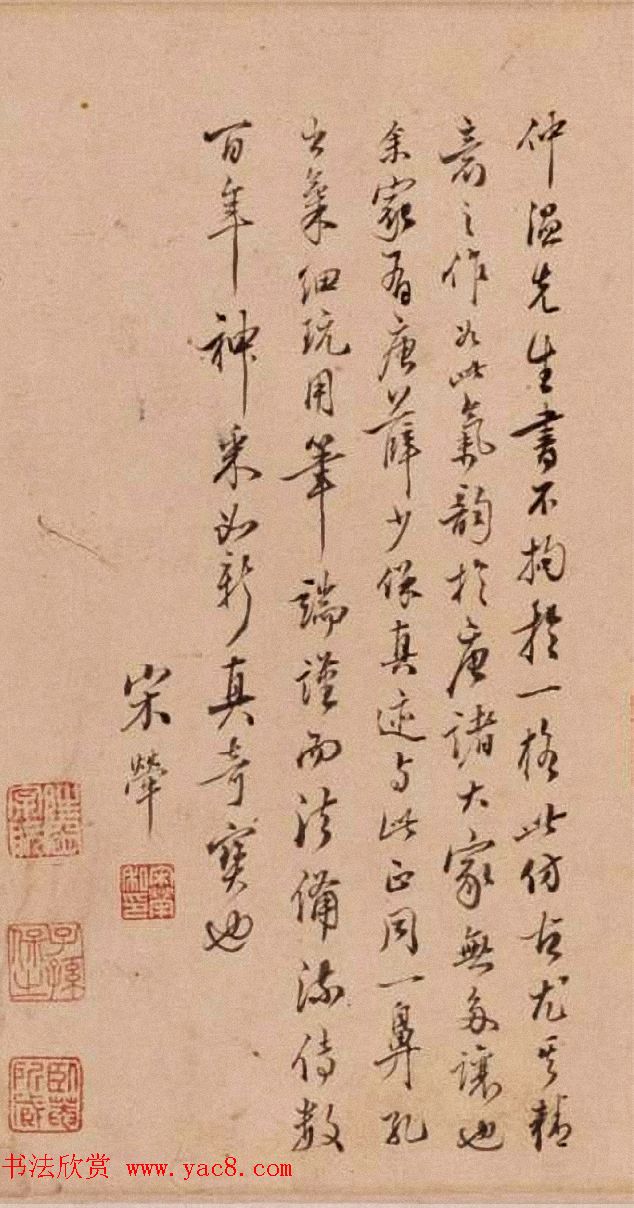 仲温先生書不拘於一格此仿古尤其精
意之作如此氣韵於唐諸大家無多讓也
余家有唐薛少保真迹与此正同一鼻孔
出氣細玩用筆端謹而法備流傳數
百年神采如新真奇寶也
宋犖
子孫保之
卧葊所藏
书法欣赏 www.yac8.com